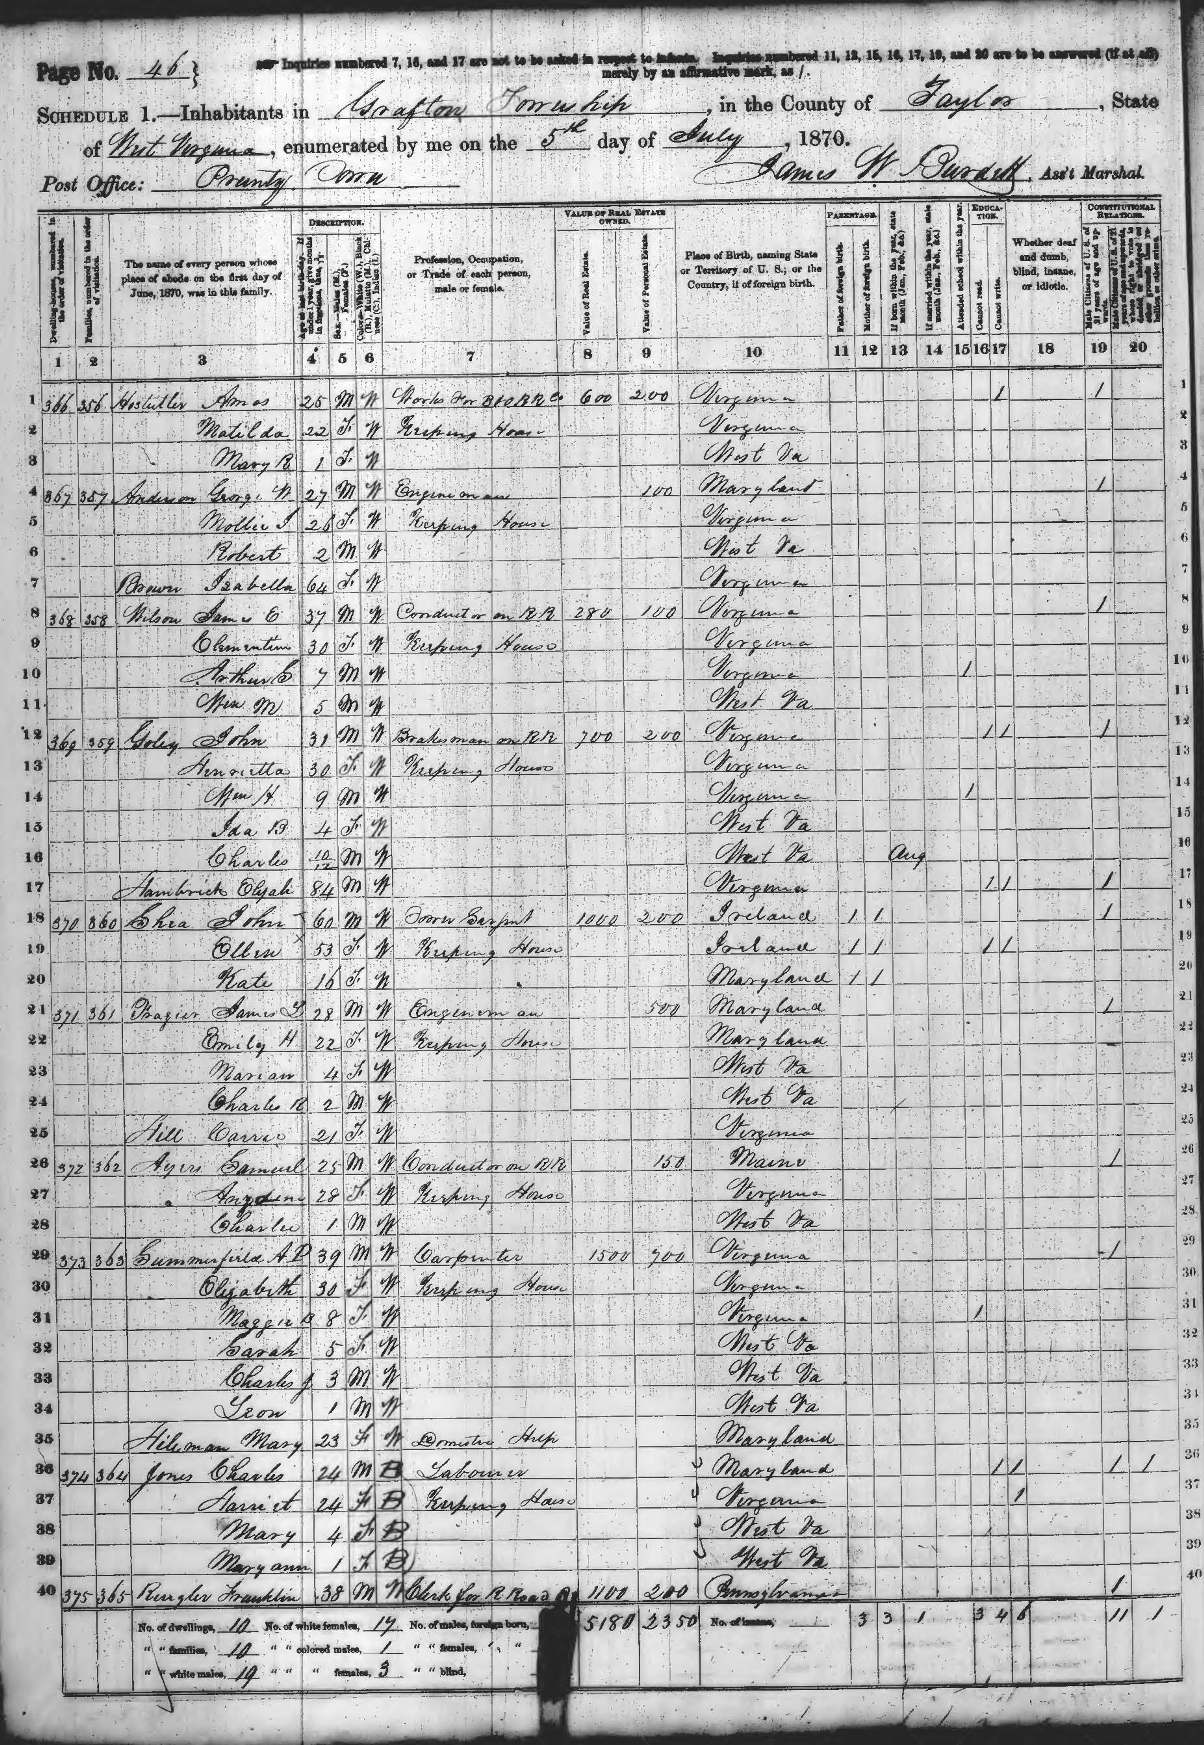 Page No. 46 } Inquiries numbered 7, 16, and 17 are not to be asked in respect to infants. Inquiries numbered 11, 12, 15, 16, 17, 19, and 20 are to be answered (if at all)
merely by an affirmative mark, as /.
SCHEDULE 1.—Inhabitants in Grafton Township, in the County of Taylor, State
of West Virginia, enumerated by me on the 5th day of July, 1870.
Post Office: Prunty Town James W. Burdett, Ass't Marshal.
Dwelling-houses, numbered in the order of visitation.
Families, numbered in the order of visitation.
The name of every person whose place of abode on the first day of June, 1870, was in this family.
DESCRIPTION.
Age at last birth-day. If under 1 year, give months in fractions, thus, 3/12
Sex.—Males (M.), Females (F.)
Color.—White (W.), Black (B.), Mulatto (M.), Chinese (C.), Indian (I.)
Profession, Occupation, or Trade of each person, male or female.
VALUE OF REAL ESTATE OWNED.
Value of Real Estate.
Value of Personal Estate.
Place of Birth, naming State or Territory of U. S.; or the Country, if of foreign birth.
PARENTAGE.
Father of foreign birth.
Mother of foreign birth.
If born within the year, state month (Jan., Feb., &c.)
If married within the year, state month (Jan., Feb., &c.)
EDUCATION.
Attended school within the year.
Cannot read.
Cannot write.
Whether deaf and dumb, blind, insane, or idiotic.
CONSTITUTIONAL RELATIONS.
Male Citizens of U. S. of 21 years of age and upwards.
1 2 3 4 5 6 7 8 9 10 11 12 13 14 15 16 17 18 19 20
1 366 356 Amos 25 M W Works for B&O RR Co 600 200 Virginia 1 1 1
2 Matilda 22 F W Keeping House Virginia 2
3 Mary B 1 F W West Va 3
4 367 357 Anderson George W 27 M W Engineman 100 Maryland 1 4
5 Mollie J 26 F W Keeping House Virginia 5
6 Robert 2 M W West Va 6
7 Brown Izabella 64 F W Virginia 7
8 368 358 Wilson James E 37 M W Conductor on RR 280 100 Virginia 1 8
9 Clementine 30 F W Keeping House Virginia 9
10 Arthur 7 M W Virginia 1 10
11 Wm M 5 M W West Va 11
12 369 359 Goley John 31 M W Brakesman on RR 700 200 Virginia 1 1 1 12
13 Henrietta 30 F W Keeping House Virginia 13
14 Wm H 9 M W Virginia 1 14
15 Ida B 4 F W West Va 15
16 Charles 10/12 M W West Va Aug 16
17 Hambrick Elijah 84 M W Virginia 1 1 1 17
18 370 360 Shea John 60 M W Town Sargent 1000 200 Ireland 1 1 1 18
19 Ellen 53 F W Keeping House Ireland 1 1 1 1 19
20 Kate 16 F W Maryland 1 1 20
21 371 361 Frazier James L 28 M W Engineman 500 Maryland 1 21
22 Emily H 22 F W Keeping House Maryland 22
23 Marian 4 F W West Va 23
24 Charles R 2 M W West Va 24
25 Hill Carrie 21 F W Virginia 25
26 372 362 Ayers Samuel 25 M W Conductor on RR 150 Maine 1 26
27 28 F W Keeping House Virginia 27
28 Charlie 1 M W West Va 28
29 373 363 Summerfield A. P 39 M W Carpenter 1500 700 Virginia 1 29
30 Elizabeth 30 F W Keeping House Virginia 30
31 Maggie B 8 F W Virginia 1 31
32 Sarah 5 F W West Va 32
33 Charles J 3 M W West Va 33
34 Leon 1 M W West Va 34
35 Hileman Mary 23 F W Domestic Help Maryland 35
36 374 364 Jones Charles 24 M B Labourer Maryland 1 1 1 1 36
37 Harriet 24 F B Keeping House Virginia 1 37
38 Mary 4 F B West Va 38
39 Mary ann 1 F B West Va 39
40 375 365 Franklin 38 M W Clerk for R Road 1100 200 Pennsylvania 1 40
No. of dwellings, 10 No. of white females, 17 No. of males, foreign born, 5180 2350 No. of insane, 3 3 1 3 4 6 11 1
" " families, 10 " " colored males, 1 " " females, " "
" " white males, 19 " " " females, 3 " " blind,